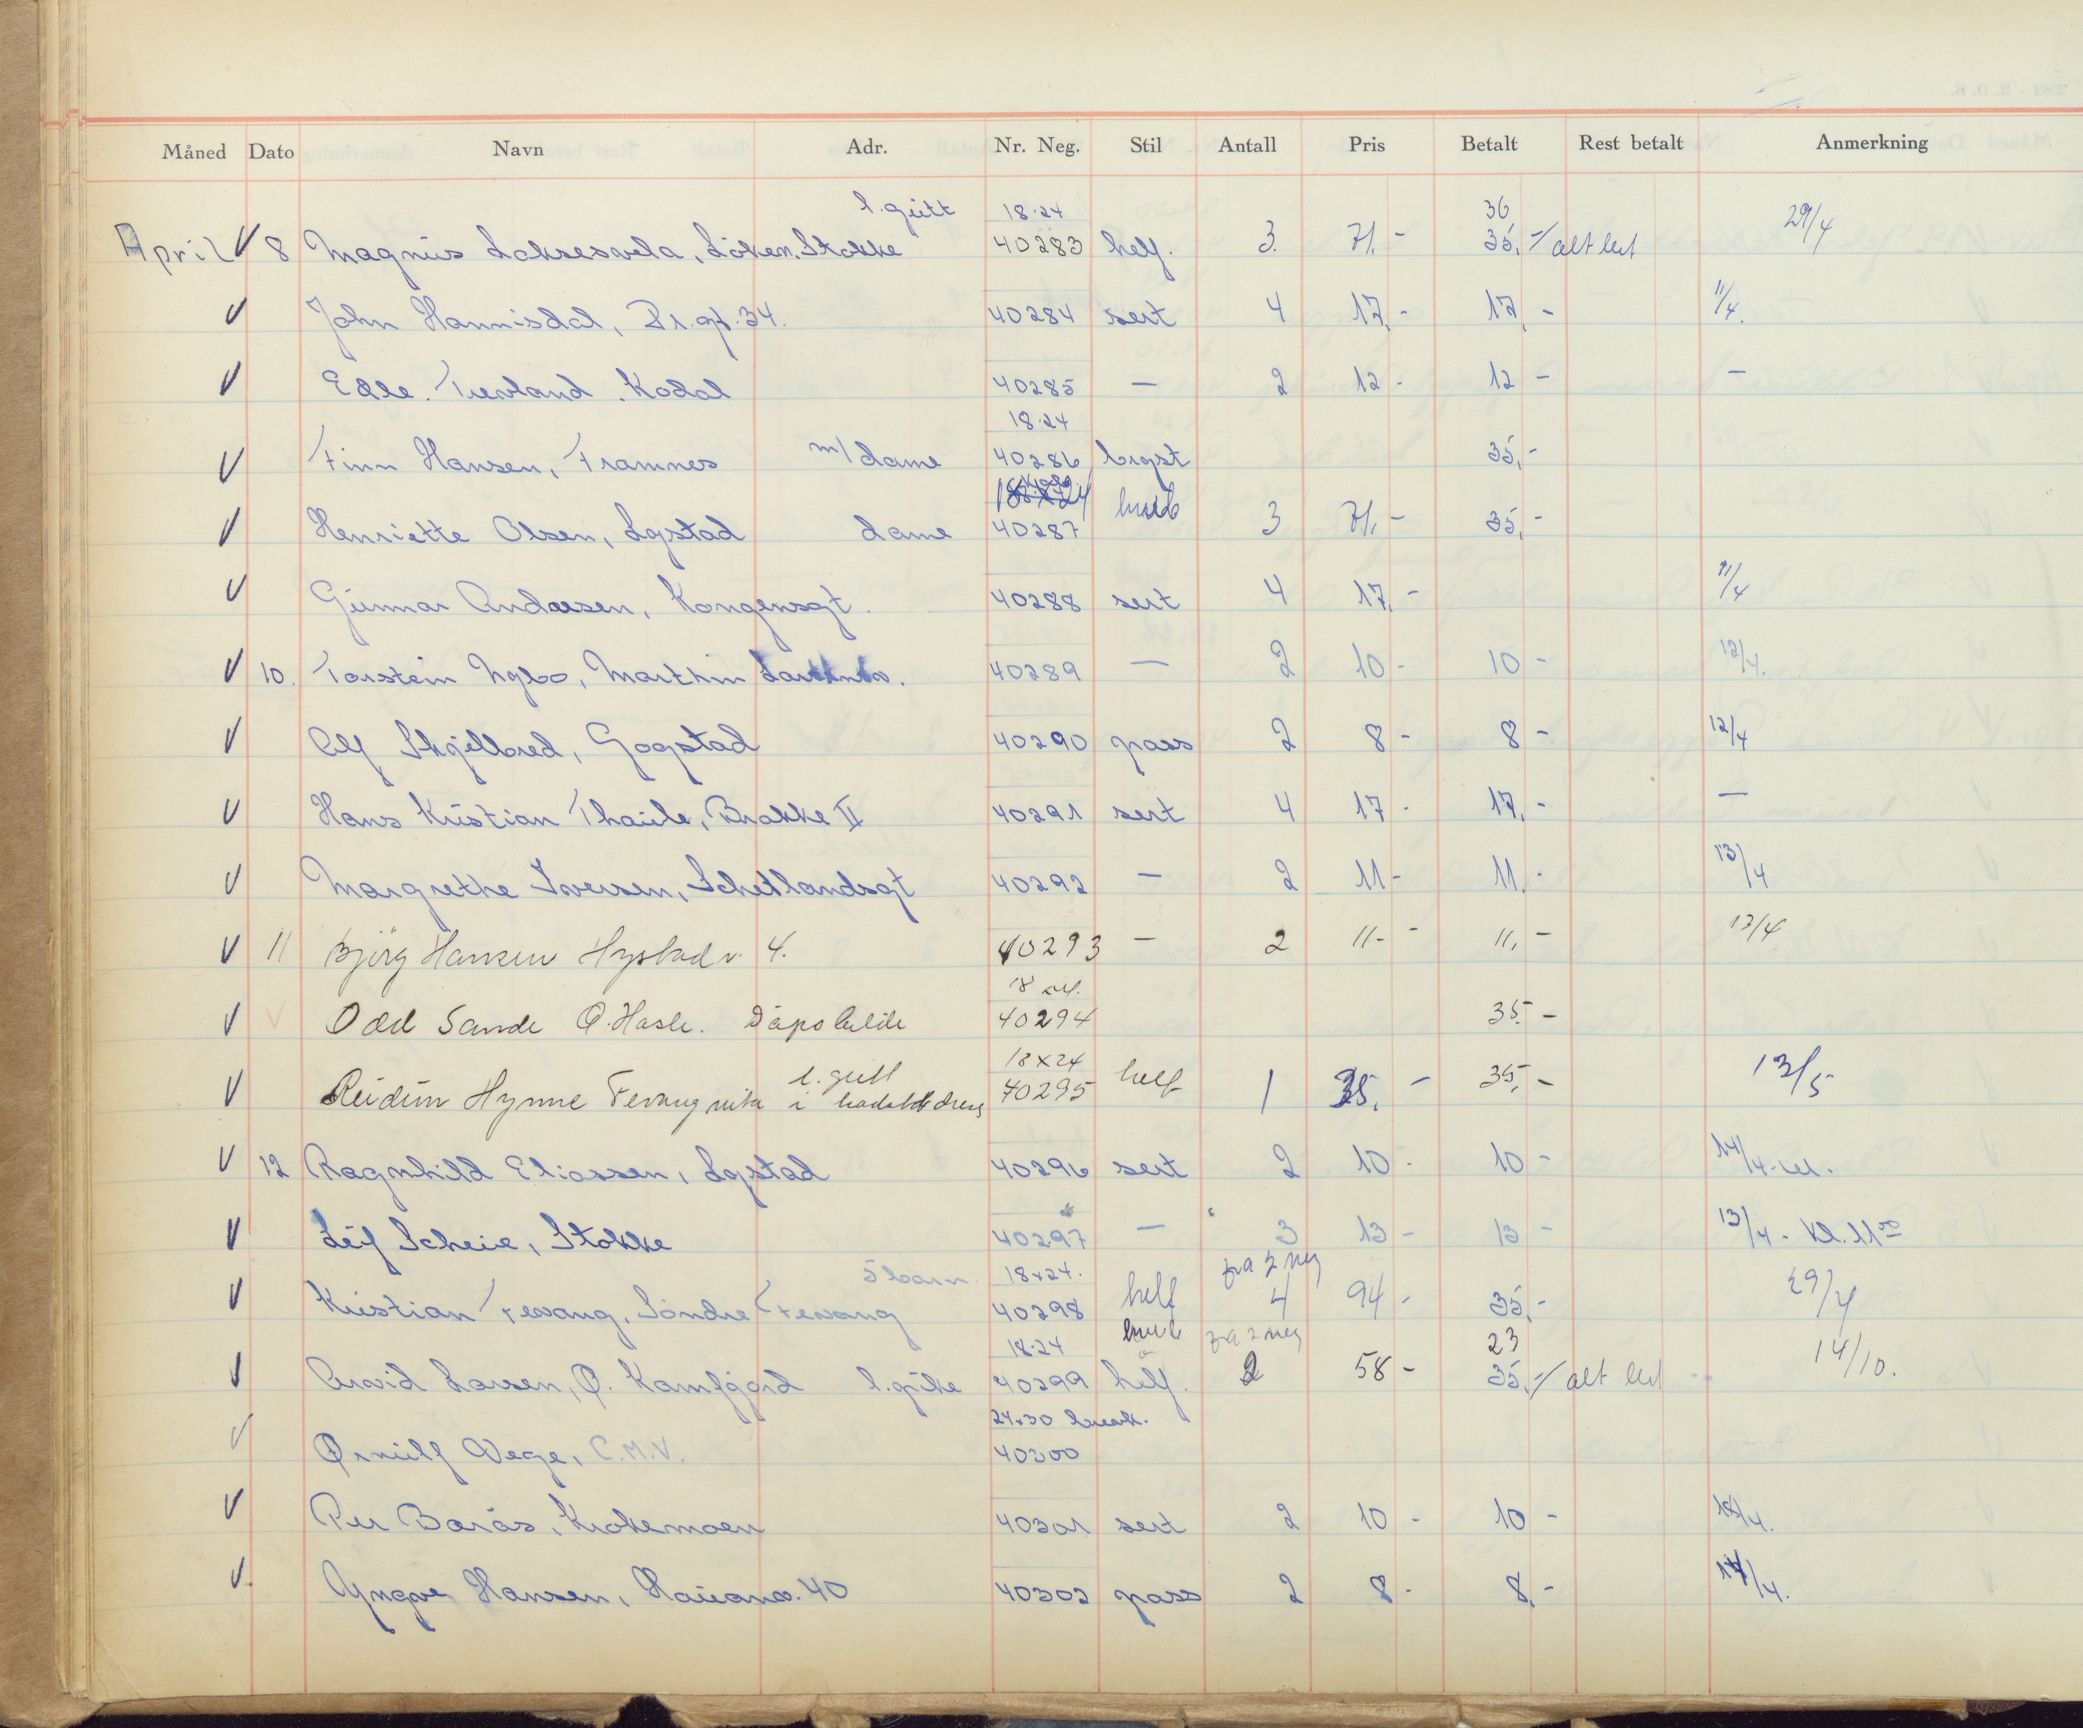 Måned Dato Navn Adr. Nr. Neg. Stil Antall Pris Betalt Rest betalt Anmerkning
l. gutt 18.24 36
April V 8 Magnus Loksesvela, Löken, Stokke 40283 helf. 3. 71,- 35,- / alt lev 29/4
V John Hannisdal, Dr.gt. 34. 40284 sert 4 17,- 17,- 11/4.
V Edle. Trevland. Kodal 40285 — 2 12- 12- —
18.24
V Finn Hansen, Framnes m/dame 40286 bryst 35,-
V Henriette Olsen, Lystad dame 40287 3 71,- 35,-
V Gunnar Andersen, Kongensgt. 40288 sert 4 17,- 11/4
V 10. Torstein Nybo, Marthin 40289 — 2 10- 10- 12/4.
V Alf Skjellbred, Gogstad 40290 pass 2 8- 8- 12/4
V Hans Kristian Thaule, Brakke II 40291 sert 4 17- 17,- —
V Margrethe Iversen, Schetlandsgt 40292 — 2 11- 11,- 13/4
V 11 Björg Hansen Hystadv. 4. 40293 — 2 11- - 11,- 13/4
V V Odd Sande Ø. Hasle. Dåpsbilde 40294 35,-
l. gutt 18x24
V Reidun Hynne Fevang 40295 helf 1 35,- 35,- 13/5
V 12 Ragnhild Eliassen, Lystad 40296 sert 2 10- 10- 14/4.
V Leif Scheie, Stokke 40297 — 3 13- 13- 13/4. kl. 11 00
5 barn 18x24. på 2 neg
V Kristian Fevang, Söndre Fevang 40298 helf 4 94- 35,- 29/4
18.24 på 2 neg 23
V Arvid Larsen, Ø. Kamfjord l. pike 40299 helf. 2 58- 35,- / alt lev 14/10.
24x30
V Ørnulf Vege, C.M.V. 40300
V Per Barås, Krokemoen 40301 sert 2 10- 10- 18/4.
V. Yngve Hansen, Hauanv. 40 40302 pass 2 8- 8,- 14/4.